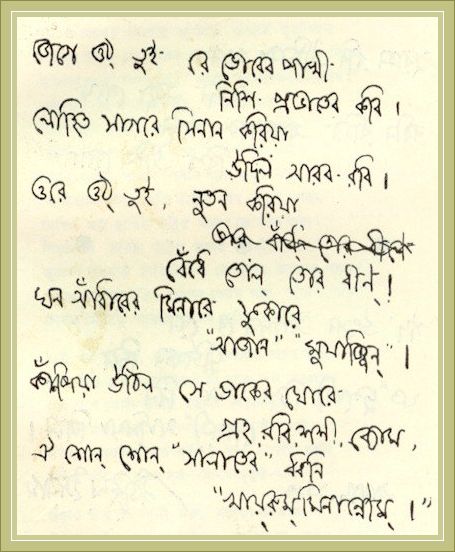 জেগে ওঠ তুই রে ভোরের পাখী
নিশি-প্রভাতের কবি।
লোহিত সাগরে সিনান করিয়া
উদিল আরব-রবি।
ওরে ওঠ্ তুই, নূতন করিয়া
বেঁধে তোল্ তোর বীণ্!
ঘন আঁধারের মিনারে ফুকারে
"আজান" "মুয়াজ্জিন্"।
কাঁপিয়া উঠিল সে ডাকের ঘোরে
গ্রহ, রবি, শশী, ব্যোম,
ঐ শোন্ শোন্ "সালাতের" ধ্বনি
"খায়রুম্‌মিনান্নৌম্।"